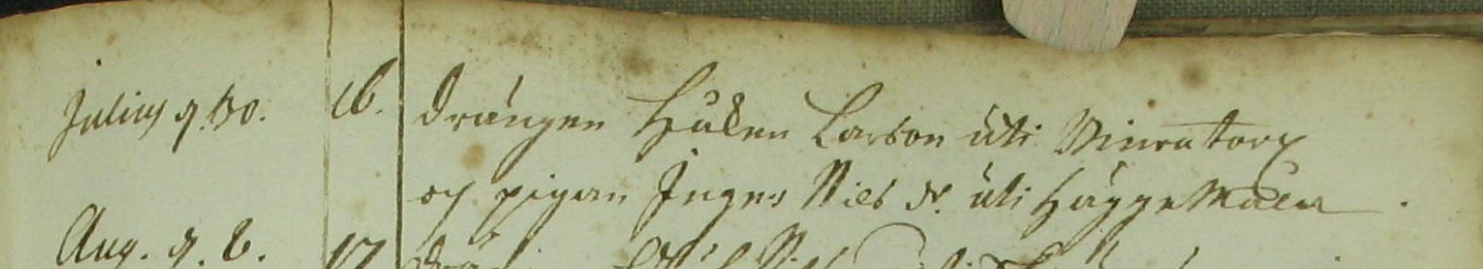 Julius d. 30. 16. Drängen Håken Larson uti Minnatorp
och pigan Inger Nils D. uti Häggemåla.
Aug. d. 6. 17